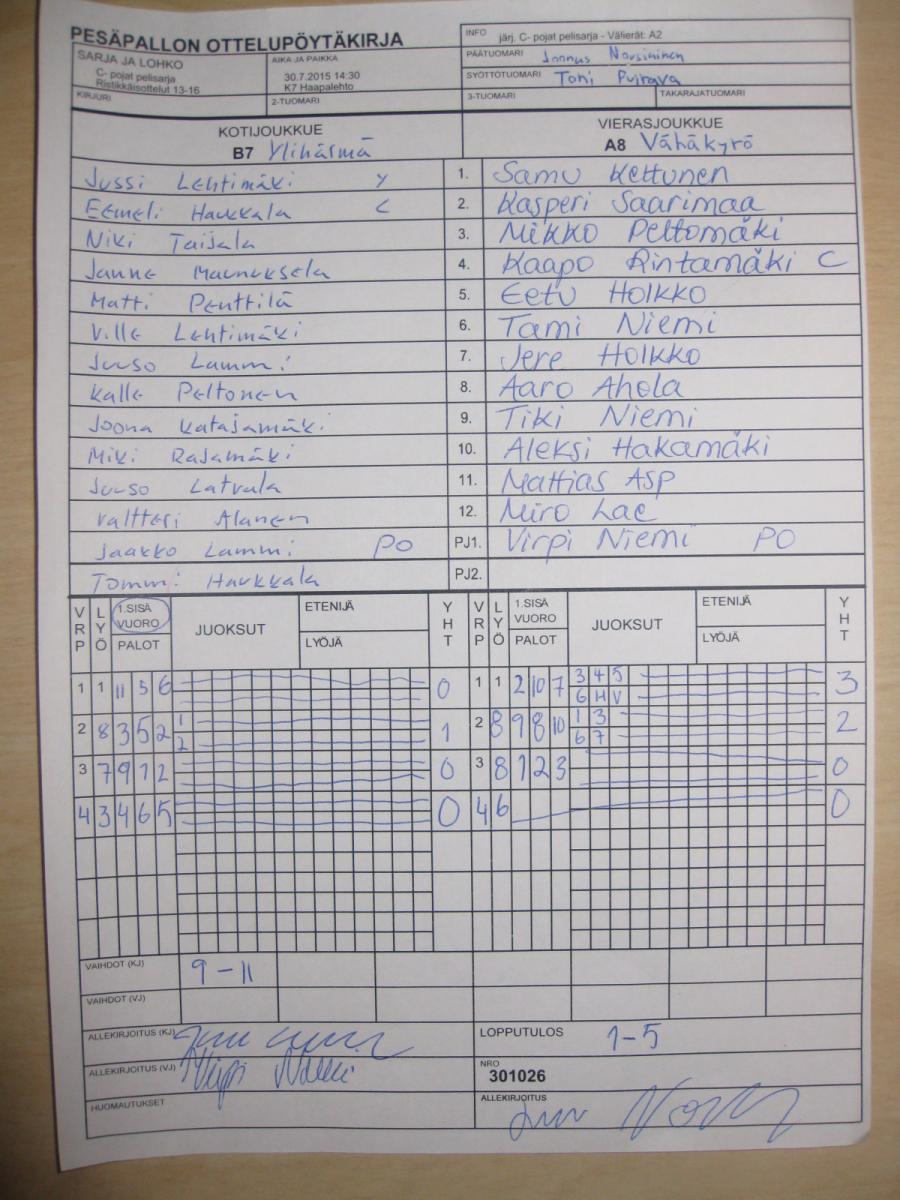 PESÄPALLON OTTELUPÖYTÄKIRJA
INFO järj. C- pojat pelisarja - Välierät: A2
SARJA JA LOHKO
C- pojat pelisarja
Ristikkäisottelut 13-16
AIKA JA PAIKKA
30.7.2015 14:30
K7 Haapalehto
PÄÄTUOMARI Joonus
SYÖTTÖTUOMARI Toni
KIRJURI
2-TUOMARI
3-TUOMARI
TAKARAJATUOMARI
KOTIJOUKKUE
B7 Ylihärmä
VIERASJOUKKUE
A8 Vähäkyrö
Jussi Lehtimäki Y 1. Samu Kettunen
Eemeli Haukkala C 2. Kasperi Saarimaa
Niki Taijala 3. Mikko Peltomäki
Janne Maunuksela 4. Kaapo Rintamäki C
Matti Penttilä 5. Eetu Holkko
Ville Lehtimäki 6. Tami Niemi
Juuso Lammi 7. Jere Holkko
Kalle Peltonen 8. Aaro Ahola
Joona Katajamäki 9. Tiki Niemi
Miki Rajamäki 10. Aleksi Hakamäki
Juuso Latvala 11. Mattias Asp
Valtteri Alanen 12. Miro Lae
Jaakko Lammi PO PJ1. Virpi Niemi PO
Tommi Haukkala PJ2.
VRP LYÖ 1.SISÄ VUORO PALOT JUOKSUT ETENIJÄ LYÖJÄ YHT VRP LYÖ 1.SISÄ VUORO PALOT JUOKSUT ETENIJÄ LYÖJÄ YHT
1 1 11 5 6 0 1 1 2 10 7 3 4 5 3
6 H V
2 8 3 5 2 1 1 2 8 9 8 10 1 3 2
2 6 7
3 7 9 1 2 0 3 8 1 2 3 0
4 3 4 6 5 0 4 6 0
VAIHDOT (KJ) 9-11
VAIHDOT (VJ)
ALLEKIRJOITUS (KJ)
LOPPUTULOS 1-5
ALLEKIRJOITUS (VJ) Virpi
NRO
301026
HUOMAUTUKSET
ALLEKIRJOITUS